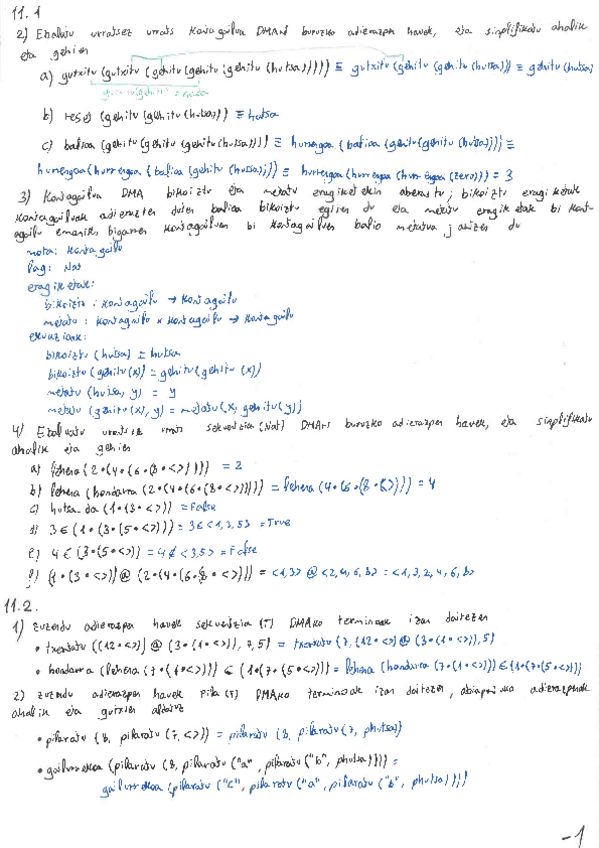 11.1
2) Ebaluatu urratsez urrats Kontagailua DMAri buruzko adierazpen hauek, eta sinplifikatu ahalik
eta gehien
a) gutxitu (gutxitu (gehitu (gehitu (gehitu (hutsa))))) ≡ gutxitu (gehitu (gehitu (hutsa))) ≡ gehitu (hutsa)
b) (gehitu (gehitu (hutsa))) ≡ hutsa
c) balioa (gehitu (gehitu (gehitu (hutsa)))) ≡ hurrengoa (balioa (gehitu (gehitu (hutsa)))) ≡
hurrengoa (hurrengoa (balioa (gehitu (hutsa)))) ≡ hurrengoa (hurrengoa (hurrengoa (zero))) = 3
3) Kontagailua DMA bikoiztu eta metatu eragiketekin aberastu; bikoiztu eragiketak
kontagailuak adierazten duten balioa bikoiztu egiten du eta metatu eragiketak bi kont-
agailu emanik bigarren kontagailuan bi kontagailuen balio metatua jartzen du
mota: kontagailu
Par: Nat
eragiketak:
bikoiztu : kontagailu → kontagailu
metatu : kontagailu x kontagailu → kontagailu
ekuazioak:
bikoiztu (hutsa) = hutsa
bikoiztu (gehitu (x)) = gehitu (gehitu (x))
metatu (hutsa, y) = y
metatu (gehitu (x), y) = metatu (x, gehitu (y))
4) Ebaluatu urratsez urrats sekuentzia (Nat) DMAri buruzko adierazpen hauek, eta sinplifikatu
ahalik eta gehien
a) lehena (2•(4•(6•(8•<>)))) = 2
b) lehena (hondarra (2•(4•(6•(8•<>))))) = lehena (4•(6•(8•<>))) = 4
c) hutsa_da (1•(3•<>)) = False
d) 3 ∈ (1•(3•(5•<>))) = 3 ∈ <1,3,5> = True
e) 4 ∈ (3•(5•<>)) = 4 ∉ <3,5> = False
f) (1•(3•<>)) @ (2•(4•(6•(8•<>)))) = <1,3> @ <2,4,6,8> = <1,3,2,4,6,8>
11.2.
1) zuzendu adierazpen hauek sekuentzia (T) DMAko terminoak izan daitezen
• txertatu ((12•<>) @ (3•(1•<>)), 7, 5) = txertatu (7, (12•<>) @ (3•(1•<>)), 5)
• hondarra (lehena (7•(1•<>))) ∈ (1•(7•(5•<>))) = lehena (hondarra (7•(1•<>))) ∈ (1•(7•(5•<>)))
2) zuzendu adierazpen hauek Pila (T) DMAko terminoak izan daitezen, abiapuntuko adierazpenak
ahalik eta gutxien aldatuz
• pilaratu (8, pilaratu (7, <>)) = pilaratu (8, pilaratu (7, phutsa))
• gailurrekoa (pilaratu (8, pilaratu ("a", pilaratu ("b", phutsa)))) =
gailurrekoa (pilaratu ("c", pilaratu ("a", pilaratu ("b", phutsa))))
-1